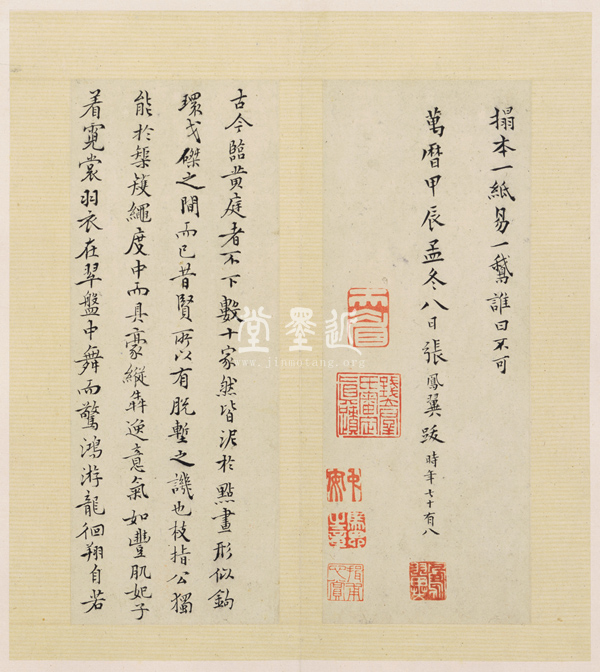 搨本一紙易一鵝誰曰不可
萬曆甲辰孟冬八日張鳳翼跋時年七十有八
古今臨黃庭者不下數十家然皆泥於點畫形似鉤
環戈磔之間而已昔賢所以有脫塹之譏也枝指公獨
能於榘矱繩度中而具豪縱犇逸意氣如豐肌妃子
着霓裳羽衣在翠盤中舞而驚鴻游龍徊翔自若
近墨堂
www.jinmotang.org